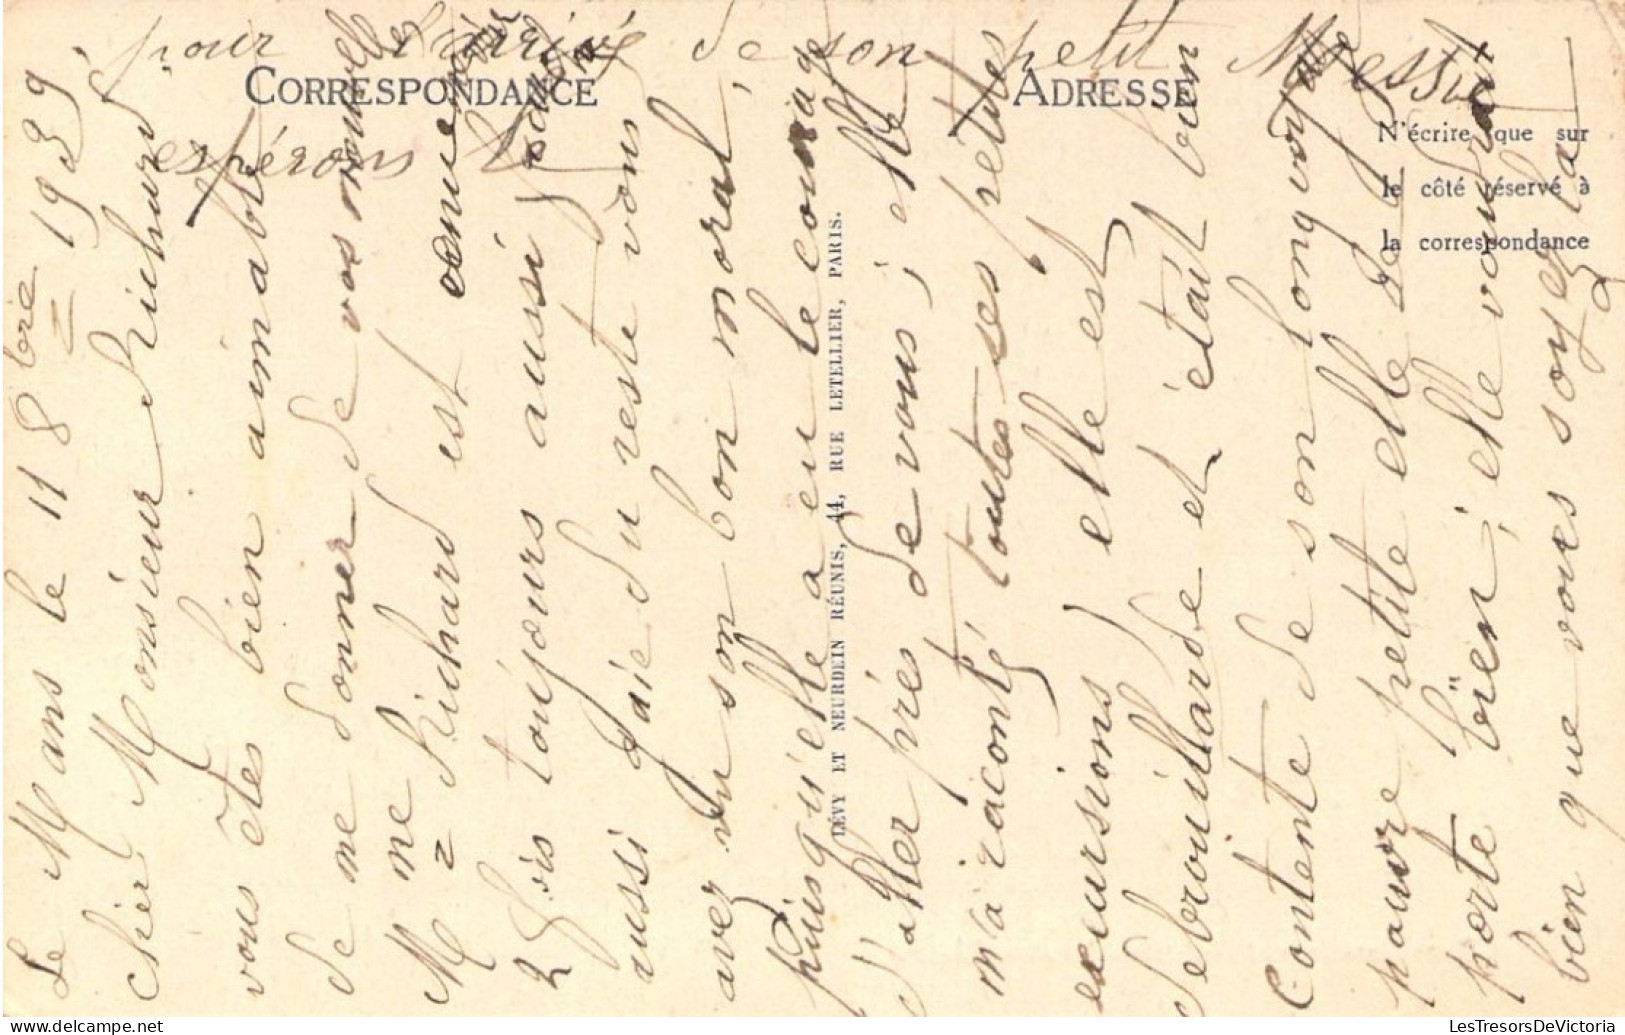 Le Mans le 11 8bre 1939
cher Monsieur Richard
vous êtes bien aimable
de me donner de vos nouvelles
Mme Richard est venue me voir
2 fois toujours aussi
aussi gaie du reste vous
avez vu son bon moral
puisqu'elle a eu le courage
d'aller près de vous, elle
m'a raconté toutes ses petites
excursions, elle est
debrouillarde et était bien
Contente de son long voyage
pauvre petite elle se
porte bien, elle voudrait
bien que vous soyez la
pour l'arrivé de son petit
espérons le
CORRESPONDANCE
ADRESSE
N'écrire que sur
le côté réservé à
la correspondance
LÉVY ET NEURDEIN RÉUNIS, 44, RUE LETELLIER, PARIS.
LesTresorsDeVictoria
https://www.delcampe.net